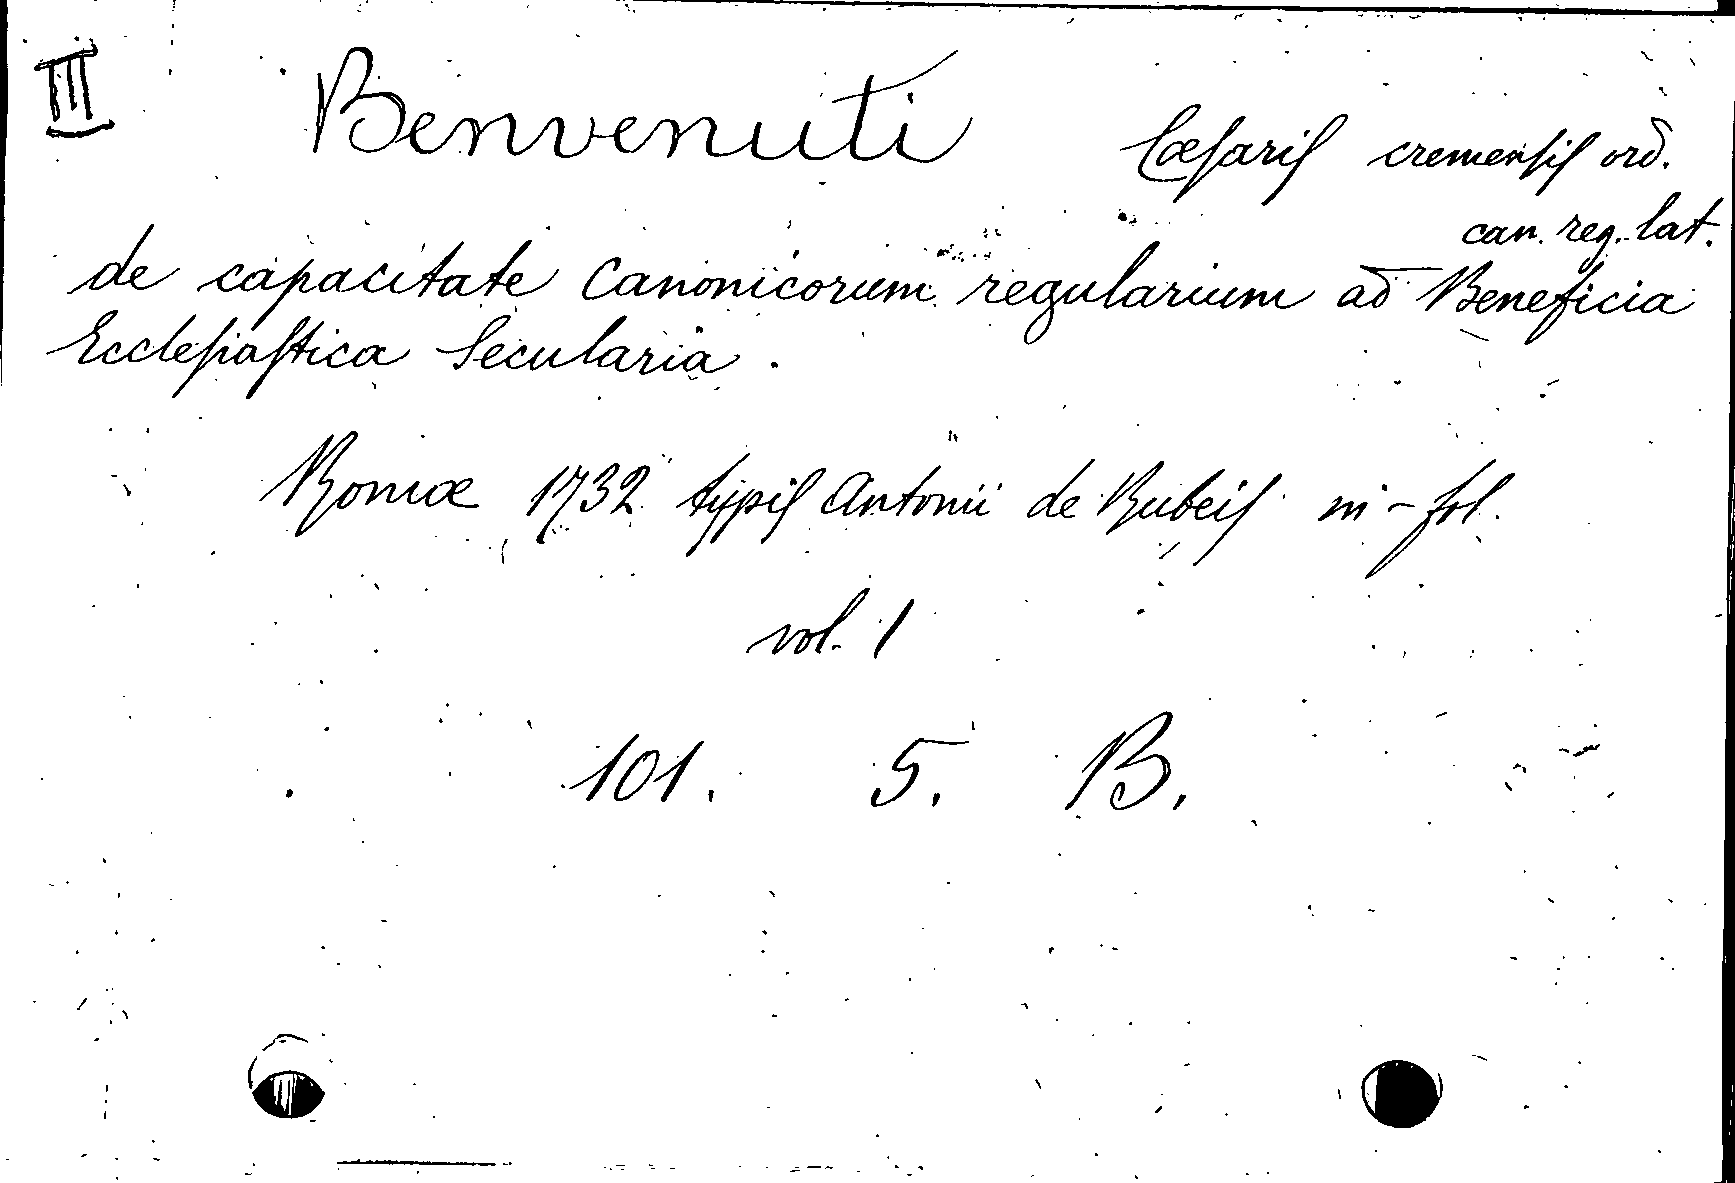 III Benvenuti Cæsaris cremensis ord.
can. reg. lat.
de capacitate Canonicorum regularium ad Beneficia
Ecclesiastica Secularia.
Romæ 1732 typis Antonii de Rubeis in-fol.
vol. 1
101. 5. B.